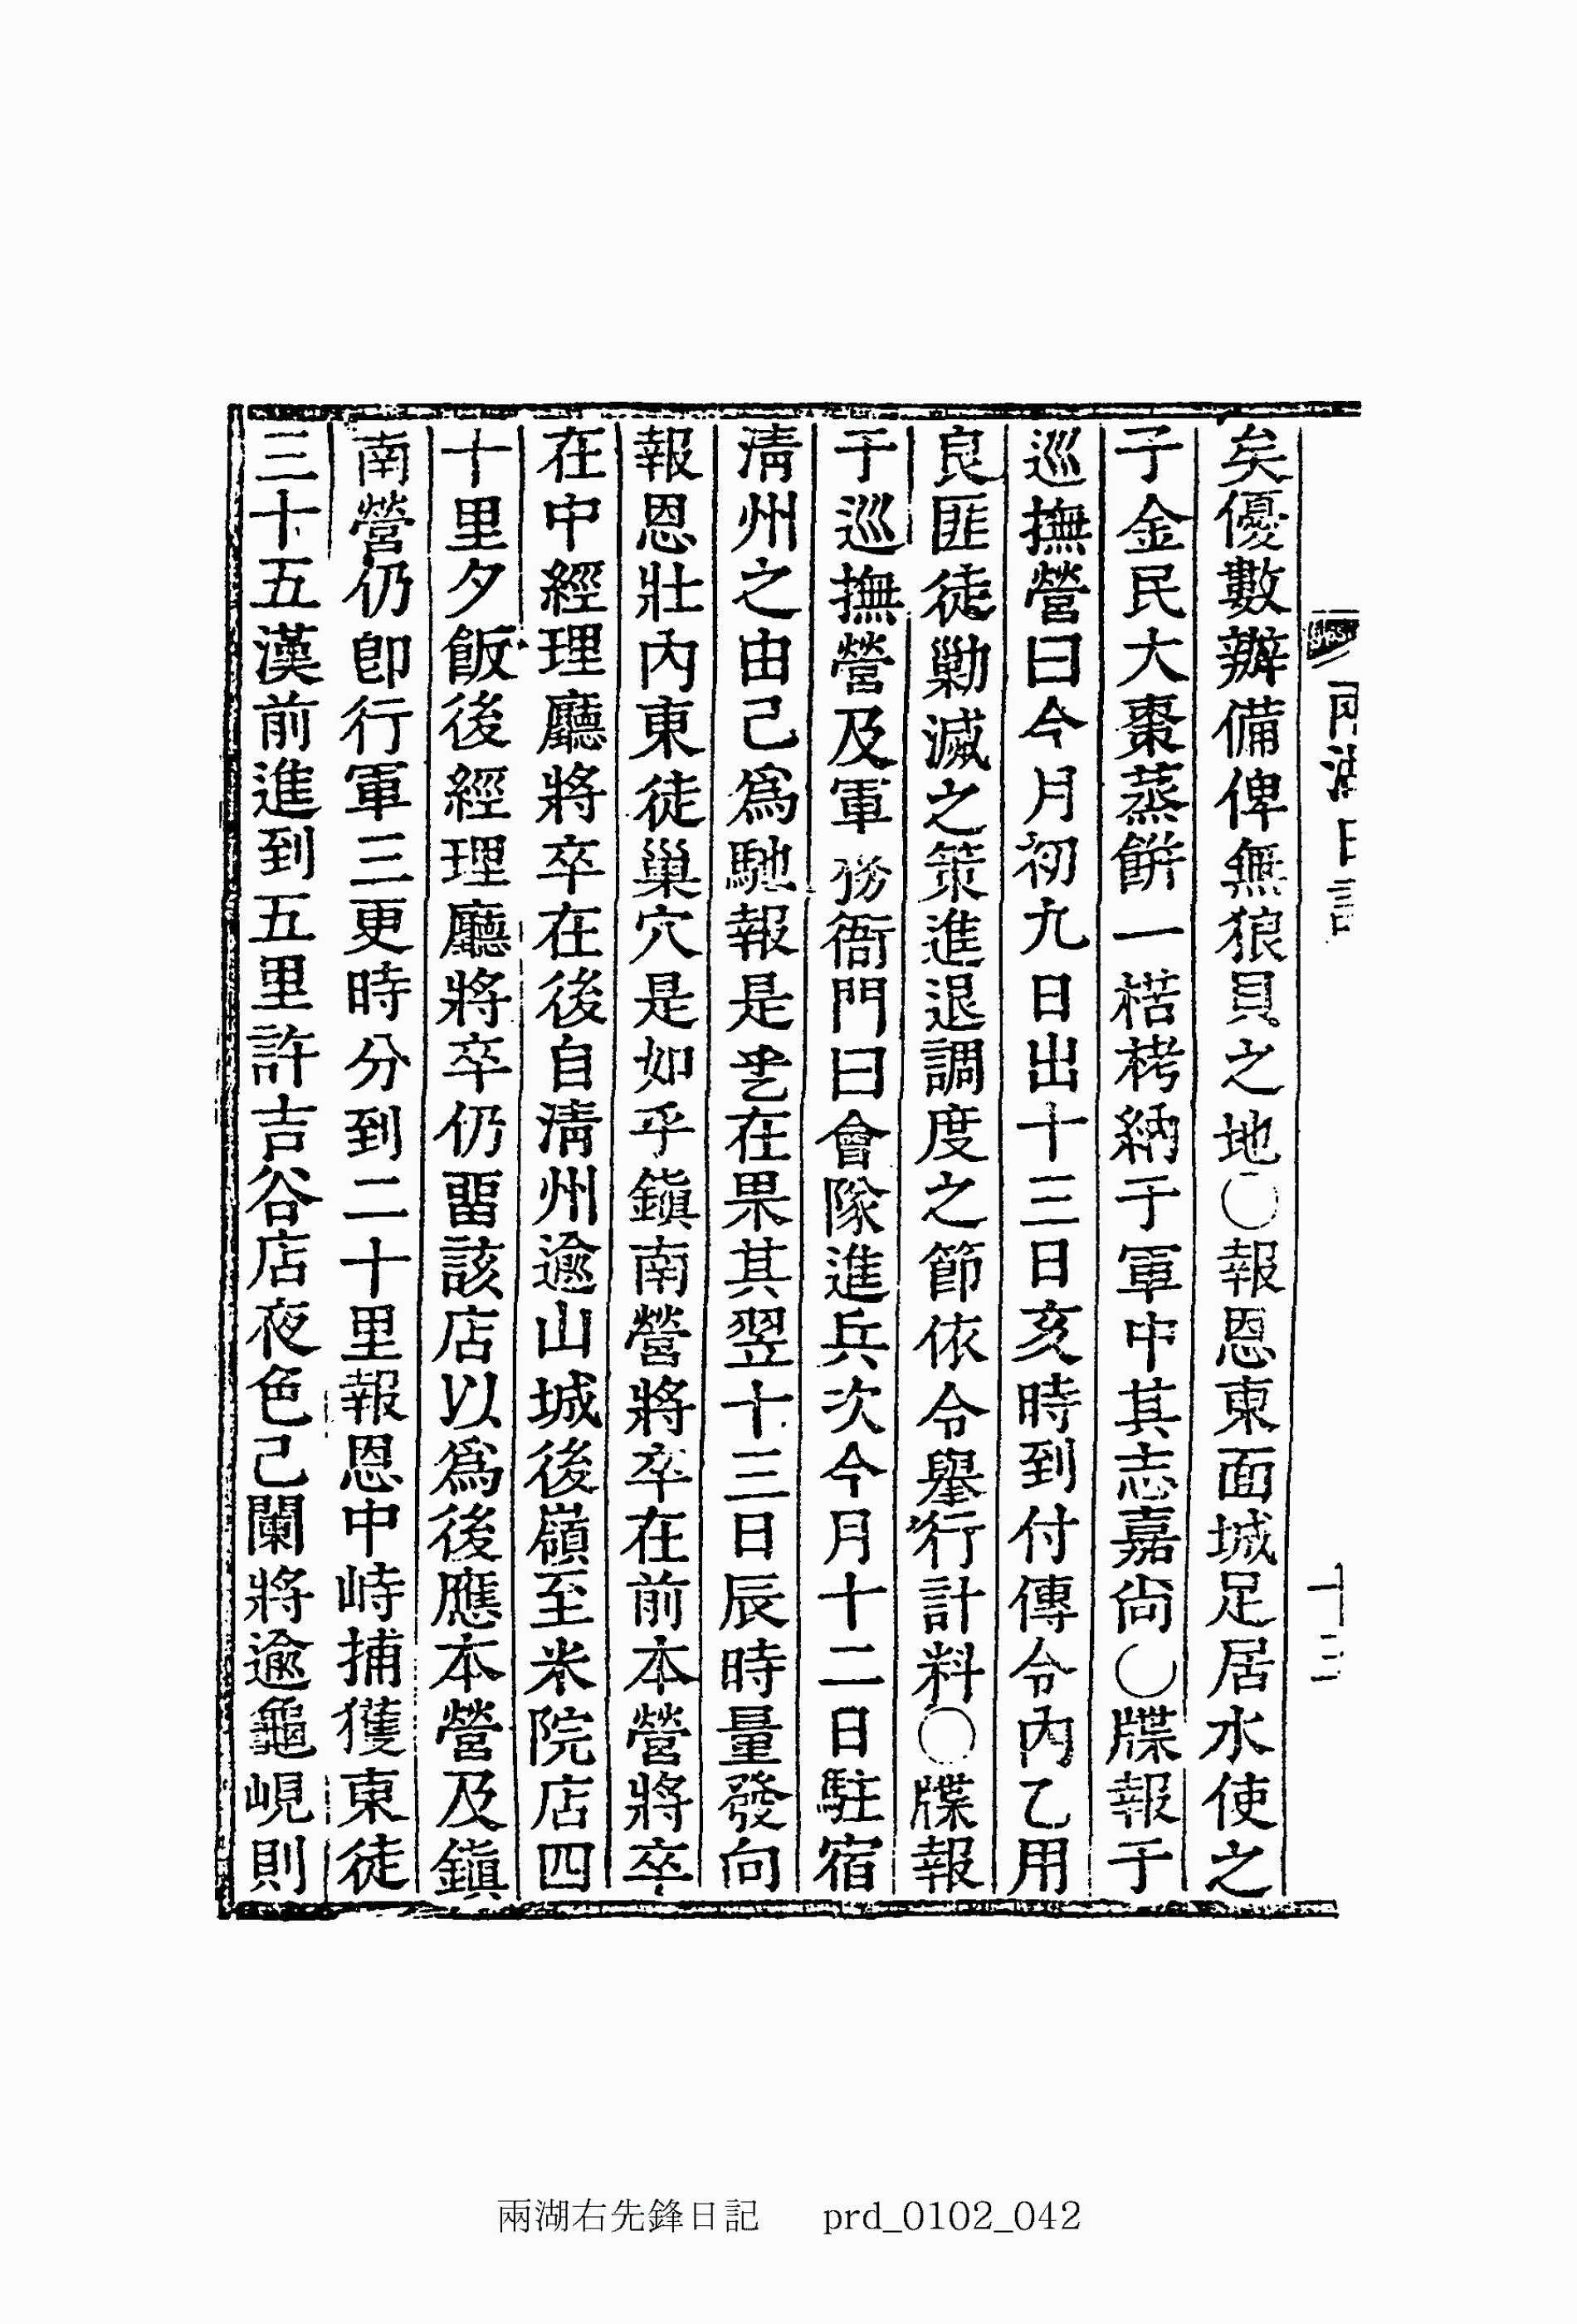 兩湖日記
十三
矣優數辦備俾無狼貝之地○報恩東面城足居水使之
子金民大棗蒸餠一楛栲納于軍中其志嘉尙○牒報于
巡撫營曰今月初九日出十三日亥時到付傳令內乙用
良匪徒勦滅之策進退調度之節依令擧行計料○牒報
于巡撫營及軍務衙門曰會隊進兵次今月十二日駐宿
淸州之由己爲馳報是乯在果其翌十三日辰時量發向
報恩壯內東徒巢穴是如乎鎭南營將卒在前本營將卒
在中經理廳將卒在後自淸州逾山城後嶺至米院店四
十里夕飯後經理廳將卒仍留該店以爲後應本營及鎭
南營仍卽行軍三更時分到二十里報恩中峙捕獲東徒
三十五漢前進到五里許吉谷店夜色己闌將逾龜峴則
兩湖右先鋒日記 prd_0102_042